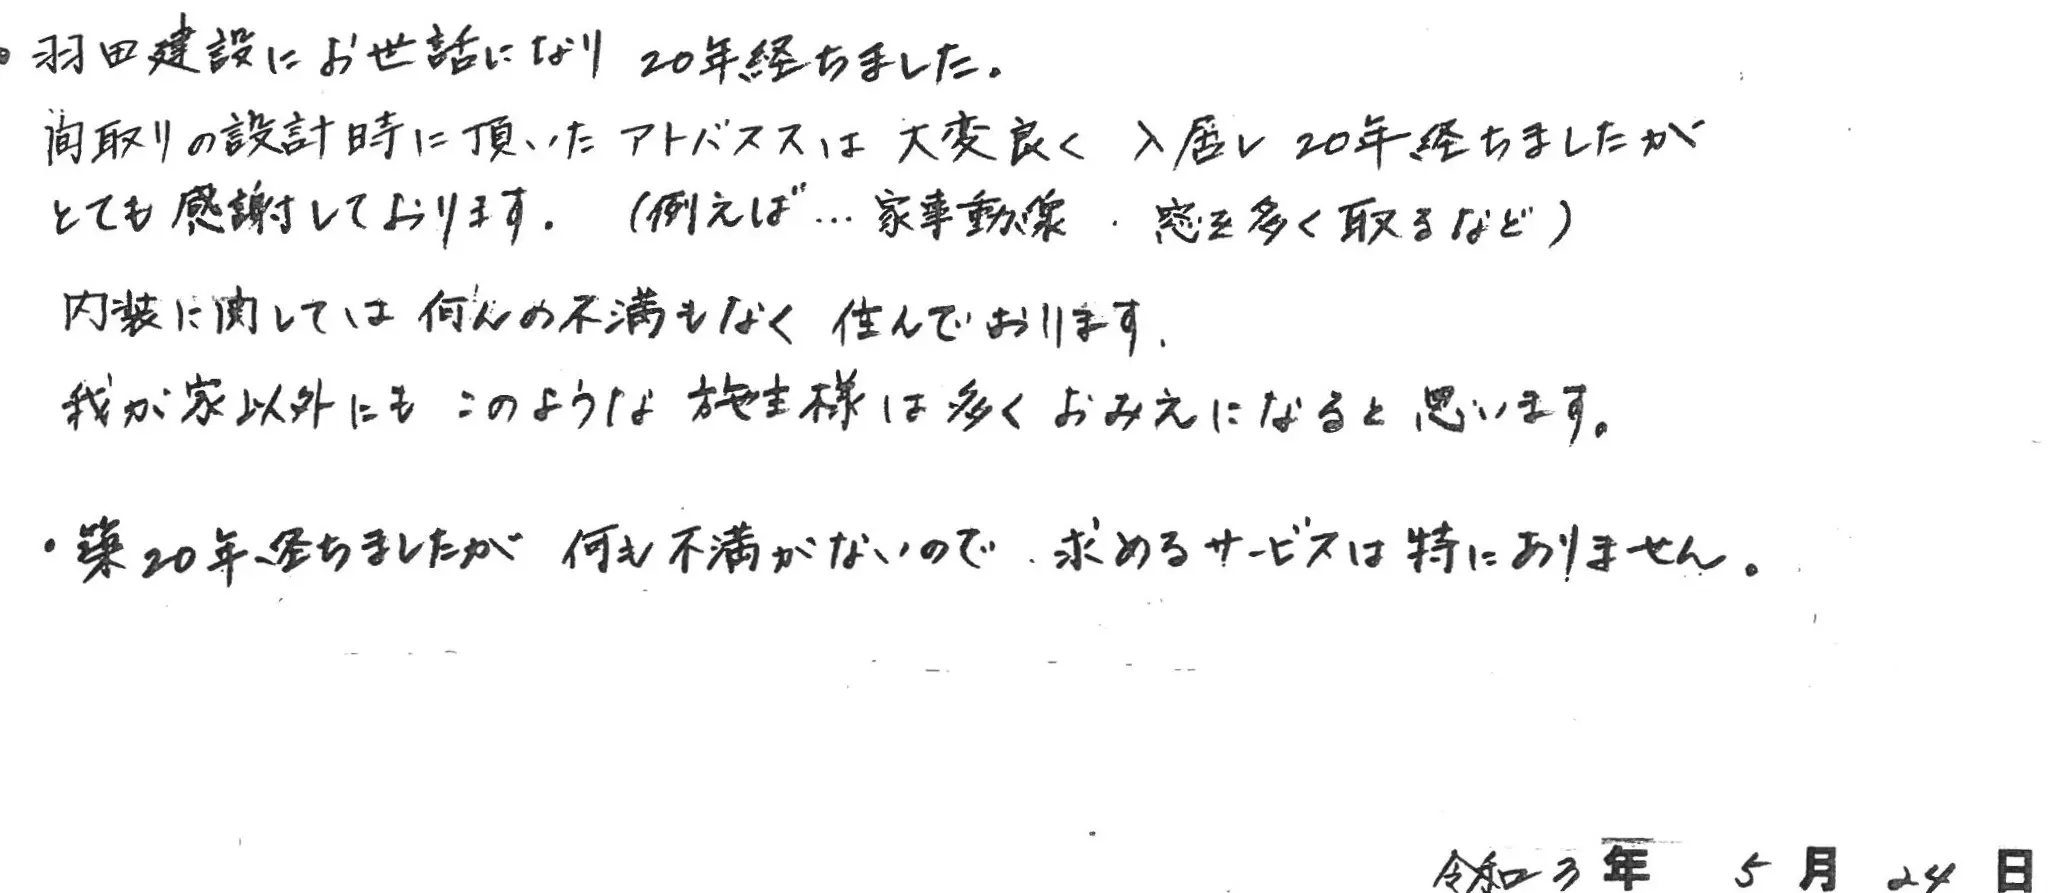 ・羽田建設にお世話になり 20年経ちました。
間取りの設計時に頂いたアドバススは 大変良く 入居し 20年経ちましたが
とても感謝しております。(例えば…家事動線・窓を多く取るなど)
内装に関しては何んの不満もなく住んでおります。
我が家以外にもこのような施主様は多くおみえになると思います。
・築20年経ちましたが 何も不満がないので、求めるサービスは特にありません。
令和3年 5月 24日